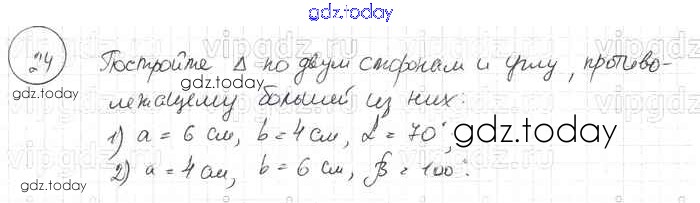 gdz.today
24
Постройте Δ по двум сторонам и углу, противо-
лежащему большей из них:
1) a = 6 см, b = 4 см, α = 70°,
2) a = 4 см, b = 6 см, β = 100°.
gdz.today
gdz.today
gdz.today
gdz.today